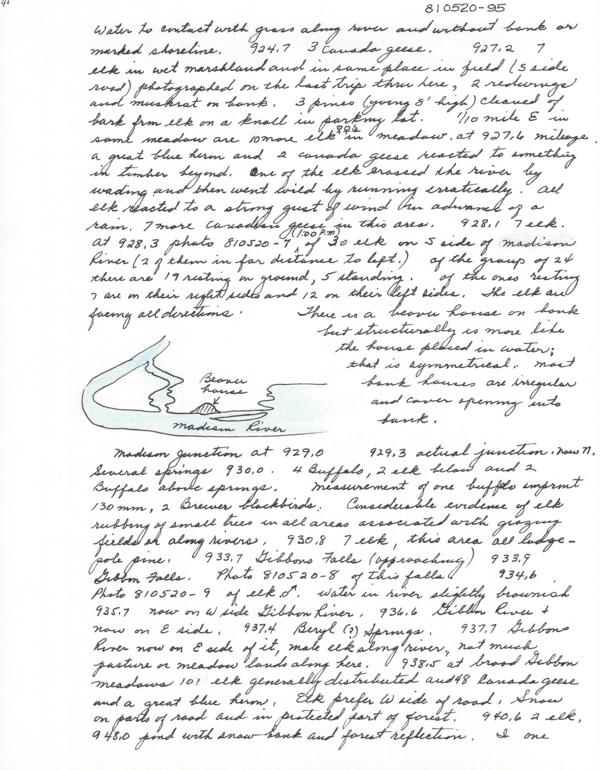 810520-95
Water to contact with grass along river and without bank or
marked shoreline. 924.7 3 Canada geese. 927.2 7
elk in wet marshland and in same place in field (S side
road) photographed on the last trip thru here, 2 redwings
and muskrat on bank. 3 pines (young 8' high) cleaned of
bark frm elk on a knoll in parking lot. 1/10 mile E in
same meadow are 10 more elk in meadow. at 927.6 mileage
a great blue heron and 2 Canada geese reacted to something
in timber beyond. One of the elk crossed the river by
wading and then went wild by running erratically. All
elk reacted to a strong gust of wind in advance of a
rain. 7 more Canadian geese in this area. 928.1 7 elk.
(1:00 PM)
At 928.3 photo 810520-7 of 30 elk on S side of Madison
River (2 of them in far distance to left.) of the group of 24
there are 19 resting on ground, 5 standing. of the ones resting
7 are on their right sides and 12 on their left sides. The elk are
facing all directions. There is a beaver house on bank
but structurally is more like
the house placed in water;
that is symmetrical. Most
bank houses are irregular
and cover opening into
bank.
Beaver
house
Madison River
Madison Junction at 929.0 929.3 actual junction. Now N.
Several springs 930.0. 4 Buffalo, 2 elk below and 2
Buffalo above springs. Measurement of one buffalo imprint
130 mm, 2 Brewer blackbirds. Considerable evidence of elk
rubbing of small trees in all areas associated with grazing
fields or along rivers. 930.8 7 elk, this area all lodge-
pole pine. 933.7 Gibbons Falls (approaching) 933.9
Gibbon Falls. Photo 810520-8 of this falls. 934.6
Photo 810520-9 of elk ♂. Water in river slightly brownish
935.7 now on W side Gibbon River. 936.6 Gibbon River +
now on E side. 937.4 Beryl (?) Springs. 937.7 Gibbons
River now on E side of it, male elk along river, not much
pasture or meadow lands along here. 938.5 at broad Gibbon
meadows 101 elk generally distributed and 48 Canada geese
and a great blue heron. Elk prefer W side of road. Snow
on parts of road and in protected part of forest. 940.6 2 elk.
948.0 pond with snow bank and forest reflection. I one